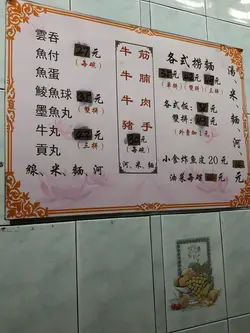 雲吞
魚付
魚蛋
鯪魚球
墨魚丸
牛丸
貢丸
線、米、麵、河
元
(每碗)
元
(雙拼)
元
(三拼)
牛筋
牛腩
牛肉
豬手
元
(每碗)
河、米、麵
各式撈麵
元
(單拼)
(雙拼)
(三拼)
各式飯:
元
雙拼:
元
(外賣加1元)
小食炸魚皮20元
油菜每碟
元
湯、米、麵、河
元